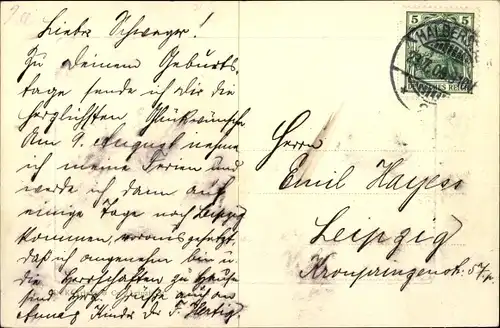 Lieber Schwager!
Zu Deinem Geburts-
tage sende ich Dir die
herzlichsten Glückwünsche
Am 9. August nehme
ich meine Ferien und
werde ich dann auf
einige Tage nach Leipzig
kommen, vorausgesetzt,
daß ich angenehm bin u.
die Herrschaften zu Hause
sind. Herzl. Grüße auch an
Kinder Dr. F. Hertig
5 5
DEUTSCHES REICH
HALBERS
Herrn
Emil Hayess
Leipzig
Kronprinzenstr. 57